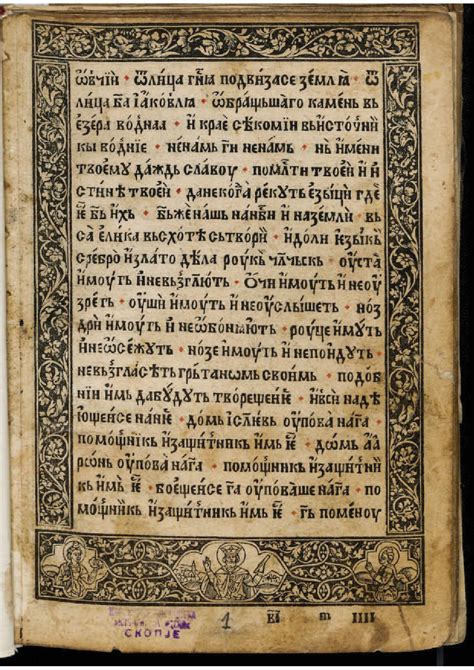 ѡвчїи · ѿлица гн҃ꙗ подвизасе землꙗ · ѿ
лица ба҃ їаковлꙗ · ѡбращьшаго камень вь
езера воднаꙗ · и краесѣкомїи вьисточни
кы воднїе · ненамь ги҃ ненамь · нь имени
твоему даждь славоу · помл҃ти твоеи и и
стинѣ твоеи · данекогда рекуть езыци где
їе б҃ь ихь · б҃ьженашь нанб҃си и наземли · в
са елика вьсхотѣ сьтвори · идоли їезыкь
сребро изла́то дѣла роукь чл҃чьскь · оуста
имоуть иневьзг҃лють · ѻчи имоуть и неоу
зреть · оуши имоуть и неоуслышеть · ноз
дри имоуть и неѡбонꙗють · роуце имуть
инеѡсежуть · нозе имоуть и непоидуть
невьзгласеть грьтаномь своимь · подоб
нїи имь дабудуть творещеиїе · ивси надѣ
ющеисе нанїе · домь ісл҃евь оупова наг҃а ·
помощникь изащитникь имь їе · домь аа
рѡнь оупова наг҃а · помощникь изащитни
кь имь їе · боещеисе г҃а оуповаше наг҃а · по
мощникь изащитникь имь їе · г҃ь поменоу
СКОПЈЕ
1